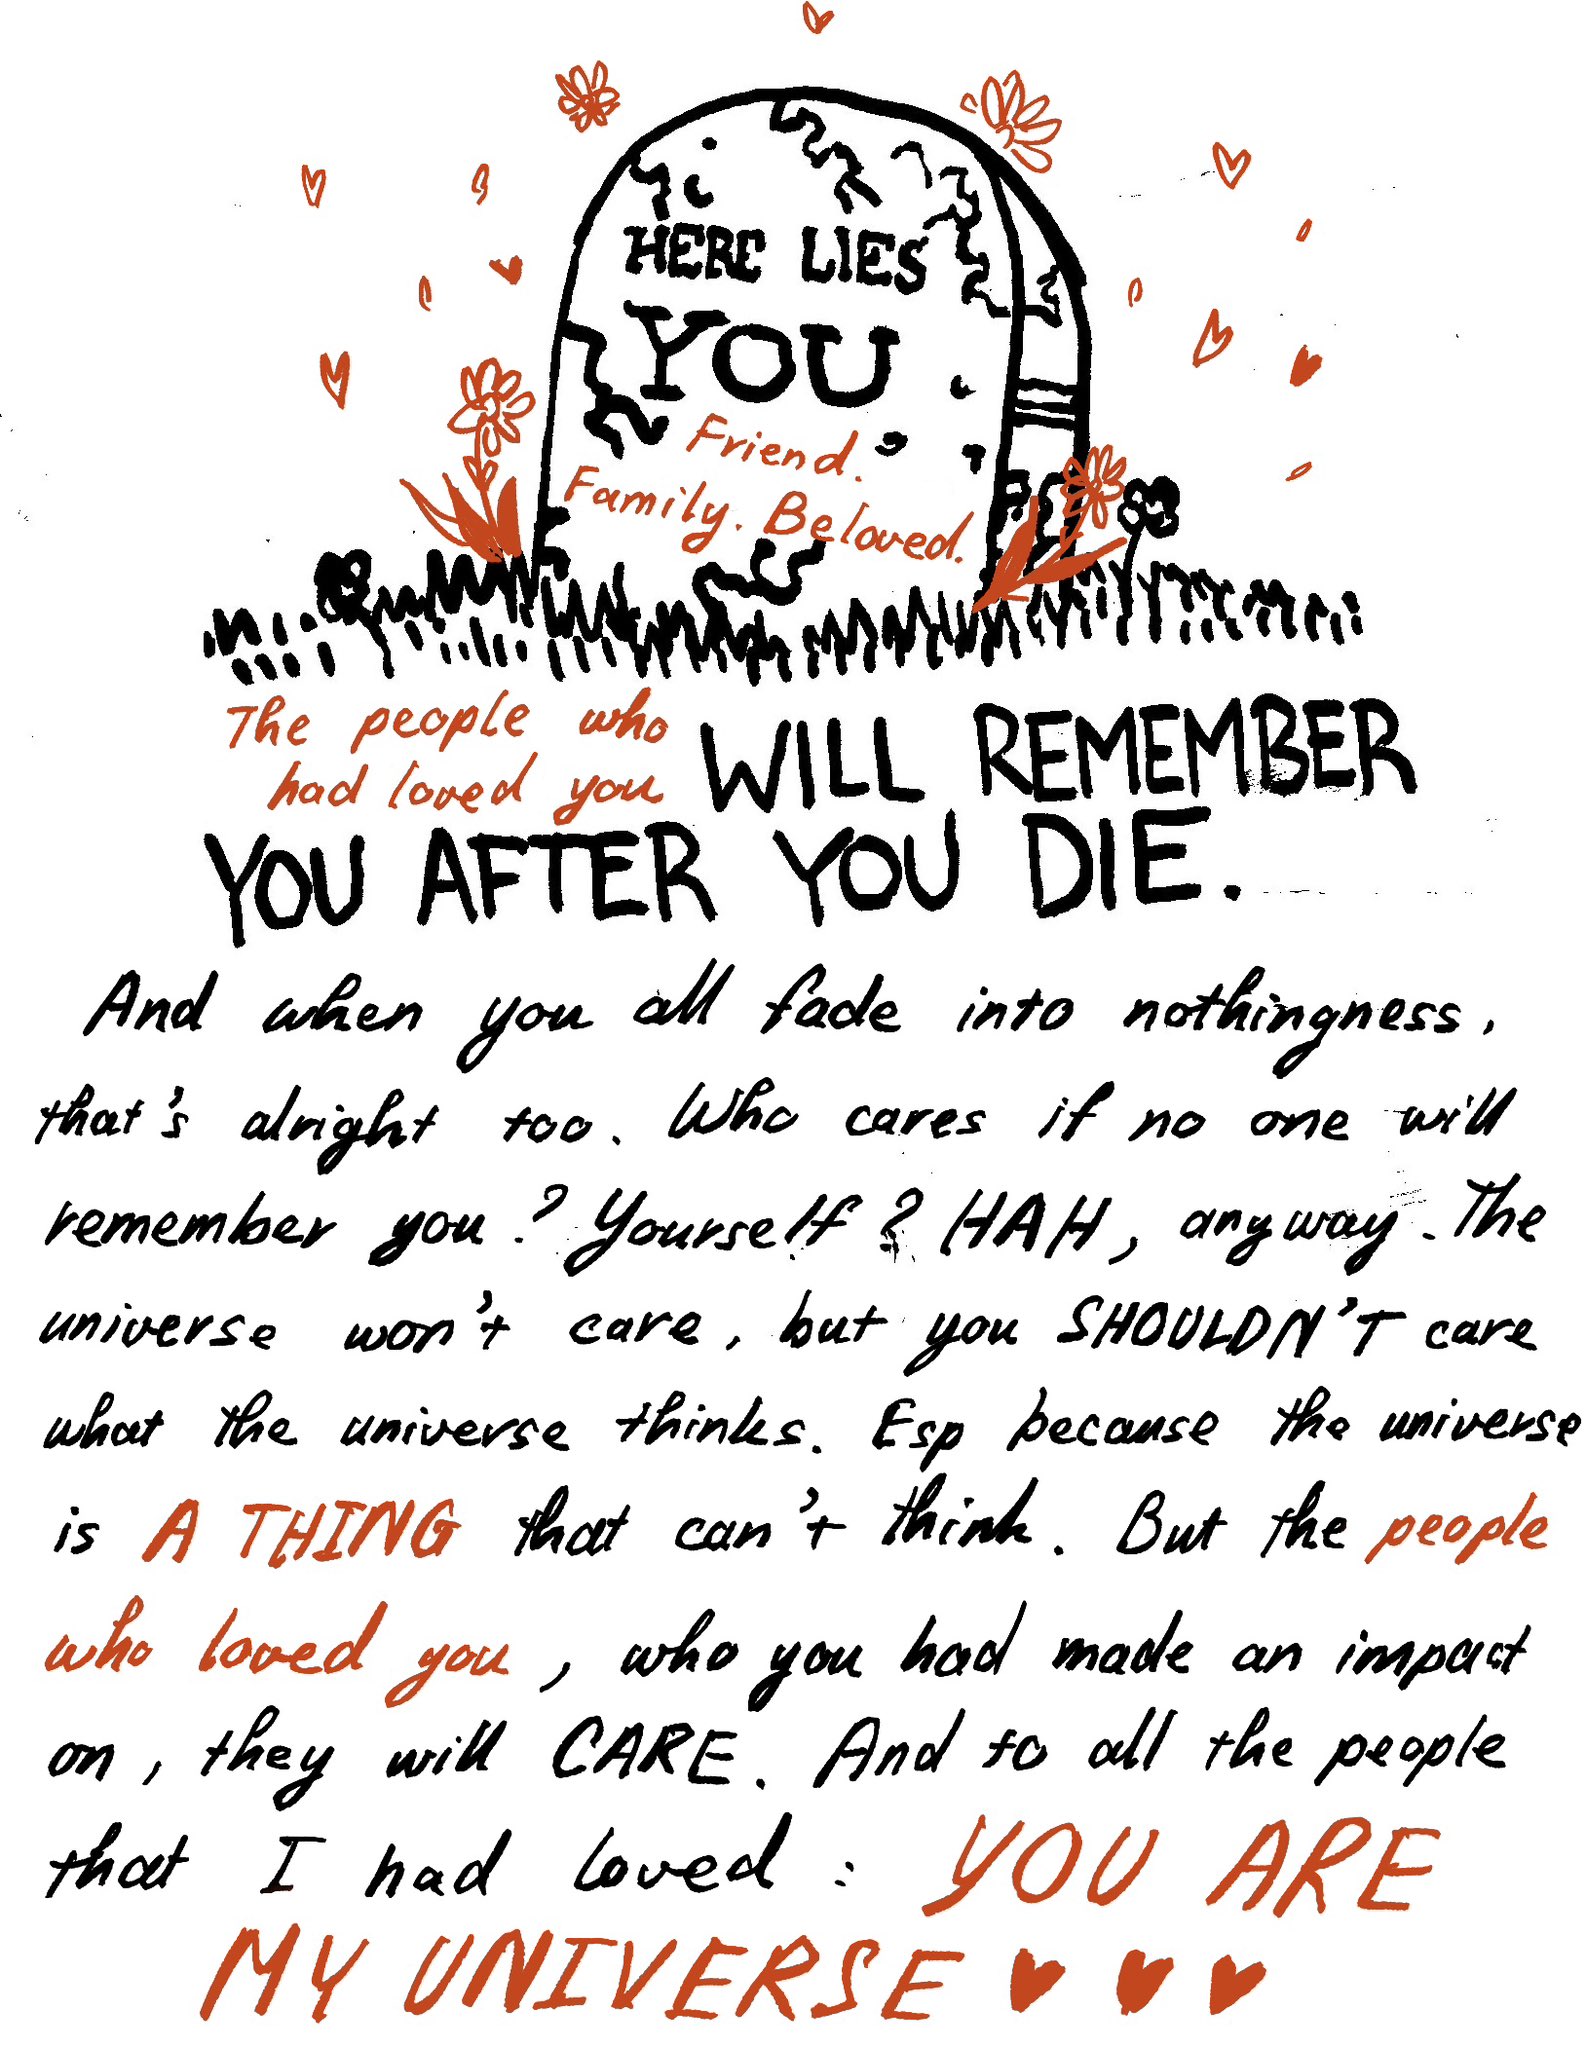 HERE LIES
YOU
Friend.
Family. Beloved.
The people who
had loved you WILL REMEMBER
YOU AFTER YOU DIE.
And when you all fade into nothingness,
that's alright too. Who cares if no one will
remember you? Yourself? HAH, anyway. The
universe won't care, but you SHOULDN'T care
what the universe thinks. Esp because the universe
is A THING that can't think. But the people
who loved you, who you had made an impact
on, they will CARE. And to all the people
that I had loved: YOU ARE
MY UNIVERSE ♥ ♥ ♥